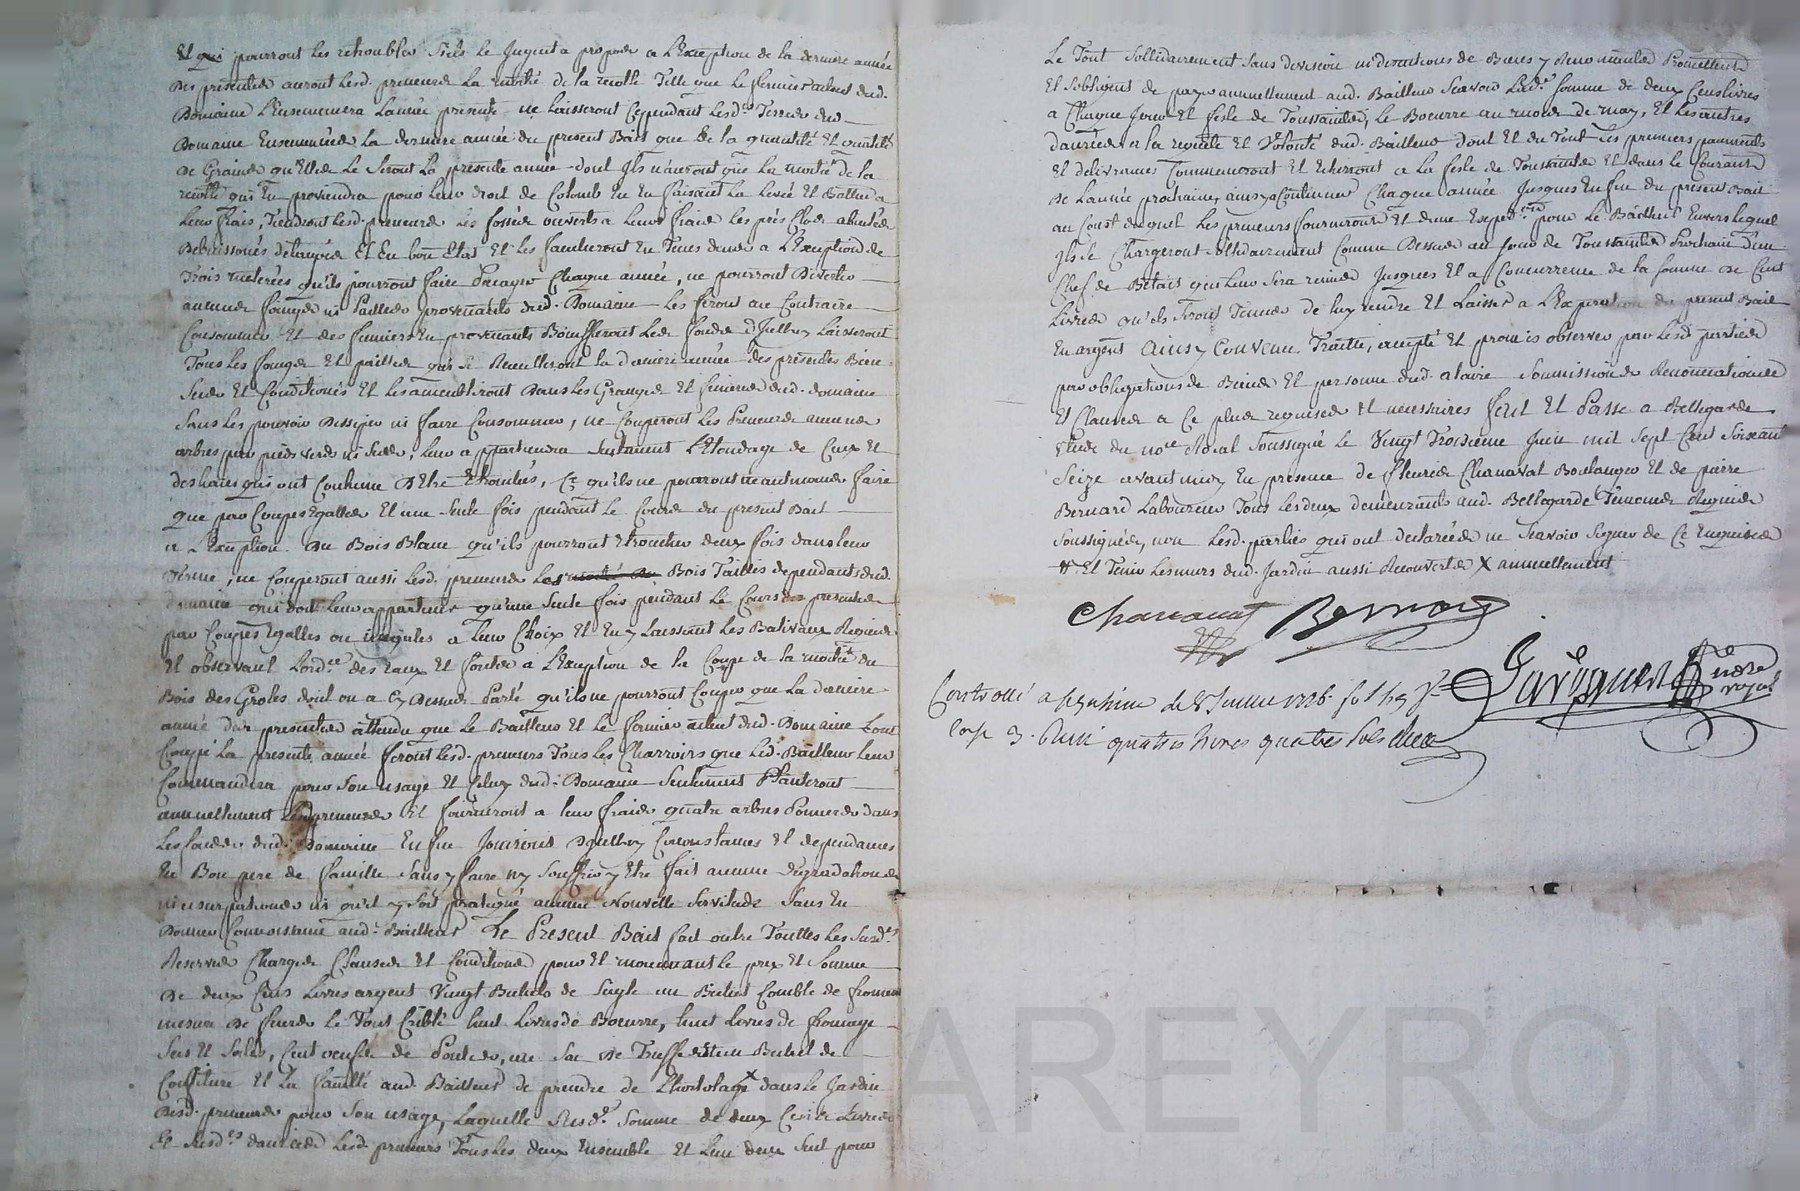 Et qui pourront les rehoubler s'ils le Jugent a propos a L'Exception de la derniere année
Des presentes auront Lesd. preneurs La moitié de la recolte Telle que Le fermier actuel dud.
Domaine L'Ensemmera L'année presente ne laisseront Cependant Lesd.es Terres dud.
Domaine Ensemmées La derniere année du present Bail que de la quantité Et qualité
De Graines qu'Elles Le Seront La presente année dont Ils n'auront que La moitié de la
recolte qui En proviendra pour Leur droit de Colons En En faisant La Levée Et Battue a
Leur frais, Tiendront Lesd. preneurs Les fossés ouverts a Leurs frais Les prés Clos abutés
Debuissonés détaupés Et En bon Etat Et Les faucheront En Tems dûs a L'Exception de
Trois meterées qu'ils pourront faire Pacager Chaque année, ne pourront Divertir
aucunes fourages ni Pailles provenants dud. Domaine Les feront au Contraire
Consommer Et des fumiers En provenants Bonifferont Les fonds d'Icelluy Laisseront
Tous Les fourages Et pailles qui se Recueilleront la derniere année des presentes Bien
Secs Et Conditionés Et Les amenbleront Dans Les Granges Et fenieres dud. domaine
Sans Les pouvoir Dissiper ni faire Consommer, ne Couperont Les Preneurs aucuns
arbres par pieds verds ni Secs, Leur appartiendra Seulement L'Elondage de Ceux Et
des haies qui ont Coutume D'Etre Etronchés, Ce qu'ils ne pourront neantmoins faire
Que par Coupes Egalles Et une Seule fois pendant Le Cours du present Bail
a L'Exception Du Bois Blanc qu'ils pourront Etroncher deux fois dans Leur
Ferme, ne Couperont aussi Lesd. preneurs Les Bois Taillis dependants dud.
domaine qui doit Leur appartenir qu'une Seule fois pendant Le Cours des presentes
par Coupes Egalles ou inegales a Leur Choix Et En y Laissant Les Balivaux Requis
Et observant L'ord.ce des Eaux Et forêts a L'Exception de la Coupe de la moitié du
Bois des Groles dont on a Cy Dessus Parlé qu'ils ne pourront Couper que La derniere
année des presentes attendu que Le Bailleur Et Le fermier actuel dud. Domaine L'ont
Coupé La presente année feront Lesd. preneurs Tous Les Charroirs que Led. Bailleur Leur
Commandera pour Son usage Et Celuy dud. Domaine Seulement Planteront
annuellement Lesd. preneurs Et fourniront a Leur frais quatre arbres Pomiers dans
Les fonds dud. Domaine Enfin Jouiront D'Icelluy Circonstances Et dependances
En Bon pere de famille Sans y faire ny Souffrir y Etre fait aucune Degradations
ni usurpations ni qu'il y Soit pratiqué aucune Nouvelle Servitude Sans En
Donner Connoissance aud. Bailleur Le Present Bail fait outre Touttes Les Susd.es
Reserves Charges Clauses Et Conditions pour Et moienant Le prix Et Somme
De deux Cens Livres argent Vingt Bichets de Seigle un Bichet Comble de froment
mesure De feurs Le Tout Criblé huit Livres de Boeurre, huit Livres de fromage
Secs Et Salés, Cent oeufs de Poules, un Sac de Truffes Et un Bichet de
Coustiture Et La faculté aud. Bailleur de prendre de L'hortolage X dans Le Jardin
Desd. preneurs pour Son usage, Laquelle Susd.e Somme de deux Cens Livres
Et Susd.es danrées Lesd. preneurs Tous Les deux Ensemble Et L'un d'eux Seul pour
Le Tout Sollidairement Sans division ni discutions de Biens y Renonceants Promettent
Et S'obligent de payer annuellement aud. Bailleur Scavoir Lad.e Somme de deux Cens Livres
a Chaque Jour Et feste de Toussaints, Le Boeurre au mois de may, Et Les autres
danrées a la requête Et Volonté dud. Bailleur dont Et du Tout Les premiers paiements
Et delivrances Commenceront Et Echerront a La feste de Toussaints Et dans Le Courant
De L'année prochaine, ainsy a Continuer Chaque année Jusques En fin du present Bail
au Cout duquel Les preneurs fourniront Et d'une Exped.on pour Le Bailleur Envers Lequel
Ils Se Chargeront Sollidairement Comme Dessus au Jour de Toussaints Prochain d'un
Chef de Betais qui Leur Sera remis Jusques Et a Concurrence de la Somme de Cent
Livres qu'ils Seront Tenus de Luy rendre Et Laisser a L'Expiration du present Bail
En argent Ainsy Convenu, Traitté, accepté Et promis observer par Lesd. parties
par obligations de Biens Et personne dud. a faire Soumissions Renonciations
Et Clauses a Ce plus requises Et necessaires fait Et Passé a Bellegarde
Etude du no.re Royal Soussigné Le Vingt Troisieme Juin mil Sept Cent Soixante
Seize avant midy En presence de fleuris Chanavat Boulanger Et de pierre
Bernard Laboureur Tous Les deux demeurants aud. Bellegarde Témoins Requis
Soussignés, non Lesd. parties qui ont declarées ne Scavoir Signer de Ce Enquises
# Et Tenir Les murs dud. Jardin aussi Recouverts X annuellement
Chanavat Bernard
Controllé a le 8 Juillet 1776 f.o 169 V.o
Case 3. Reçu quatre livres quatre sols
no.re royal
AREYRON